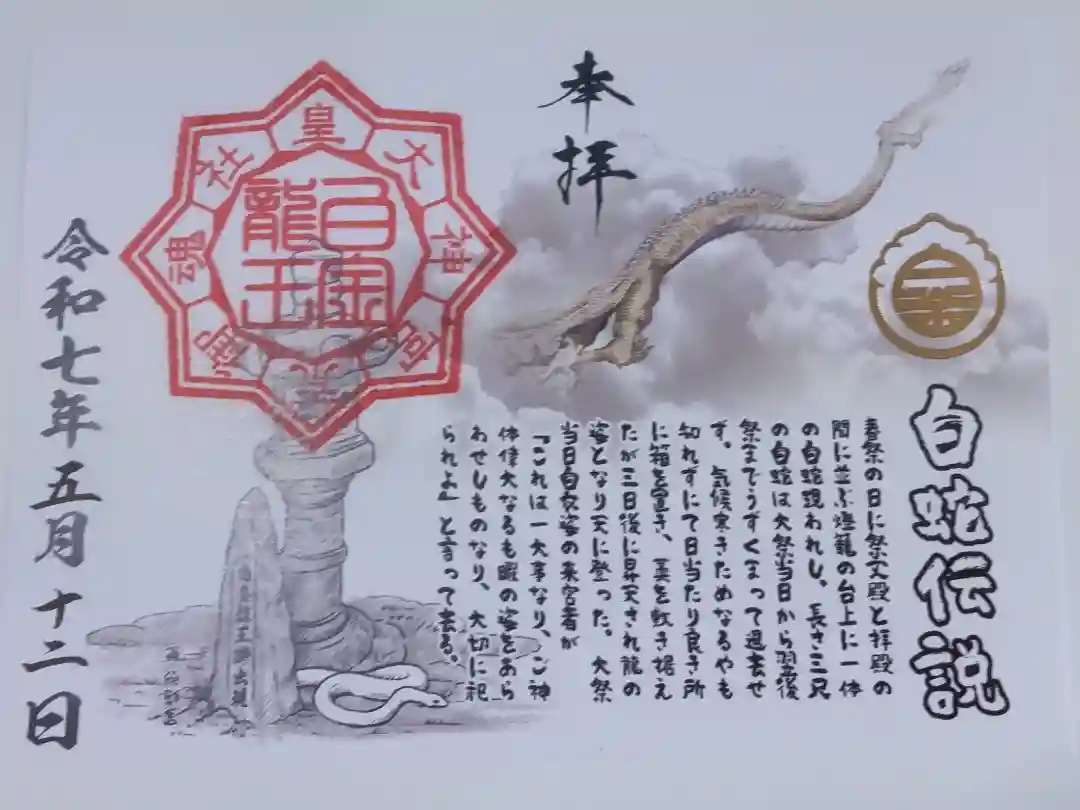 奉拝
白蛇伝説
春祭の日に祭文殿と拝殿の
間に並ぶ燈籠の台上に一体
の白蛇現われし。長さ三尺
の白蛇は大祭当日から翌後
祭までうずくまって過去せ
ず。気候寒きためなるやも
知れずにて日当たり良き所
に箱を置き、藁を敷き据え
たが三日後に昇天され龍の
姿となり天に登った。大祭
当日白衣姿の来宮者が
『これは一大事なり、ご神
体偉大なるも暇の姿をあら
わせしものなり、大切に祀
られよ』と言って去る。
白金
龍王
令和七年五月十二日